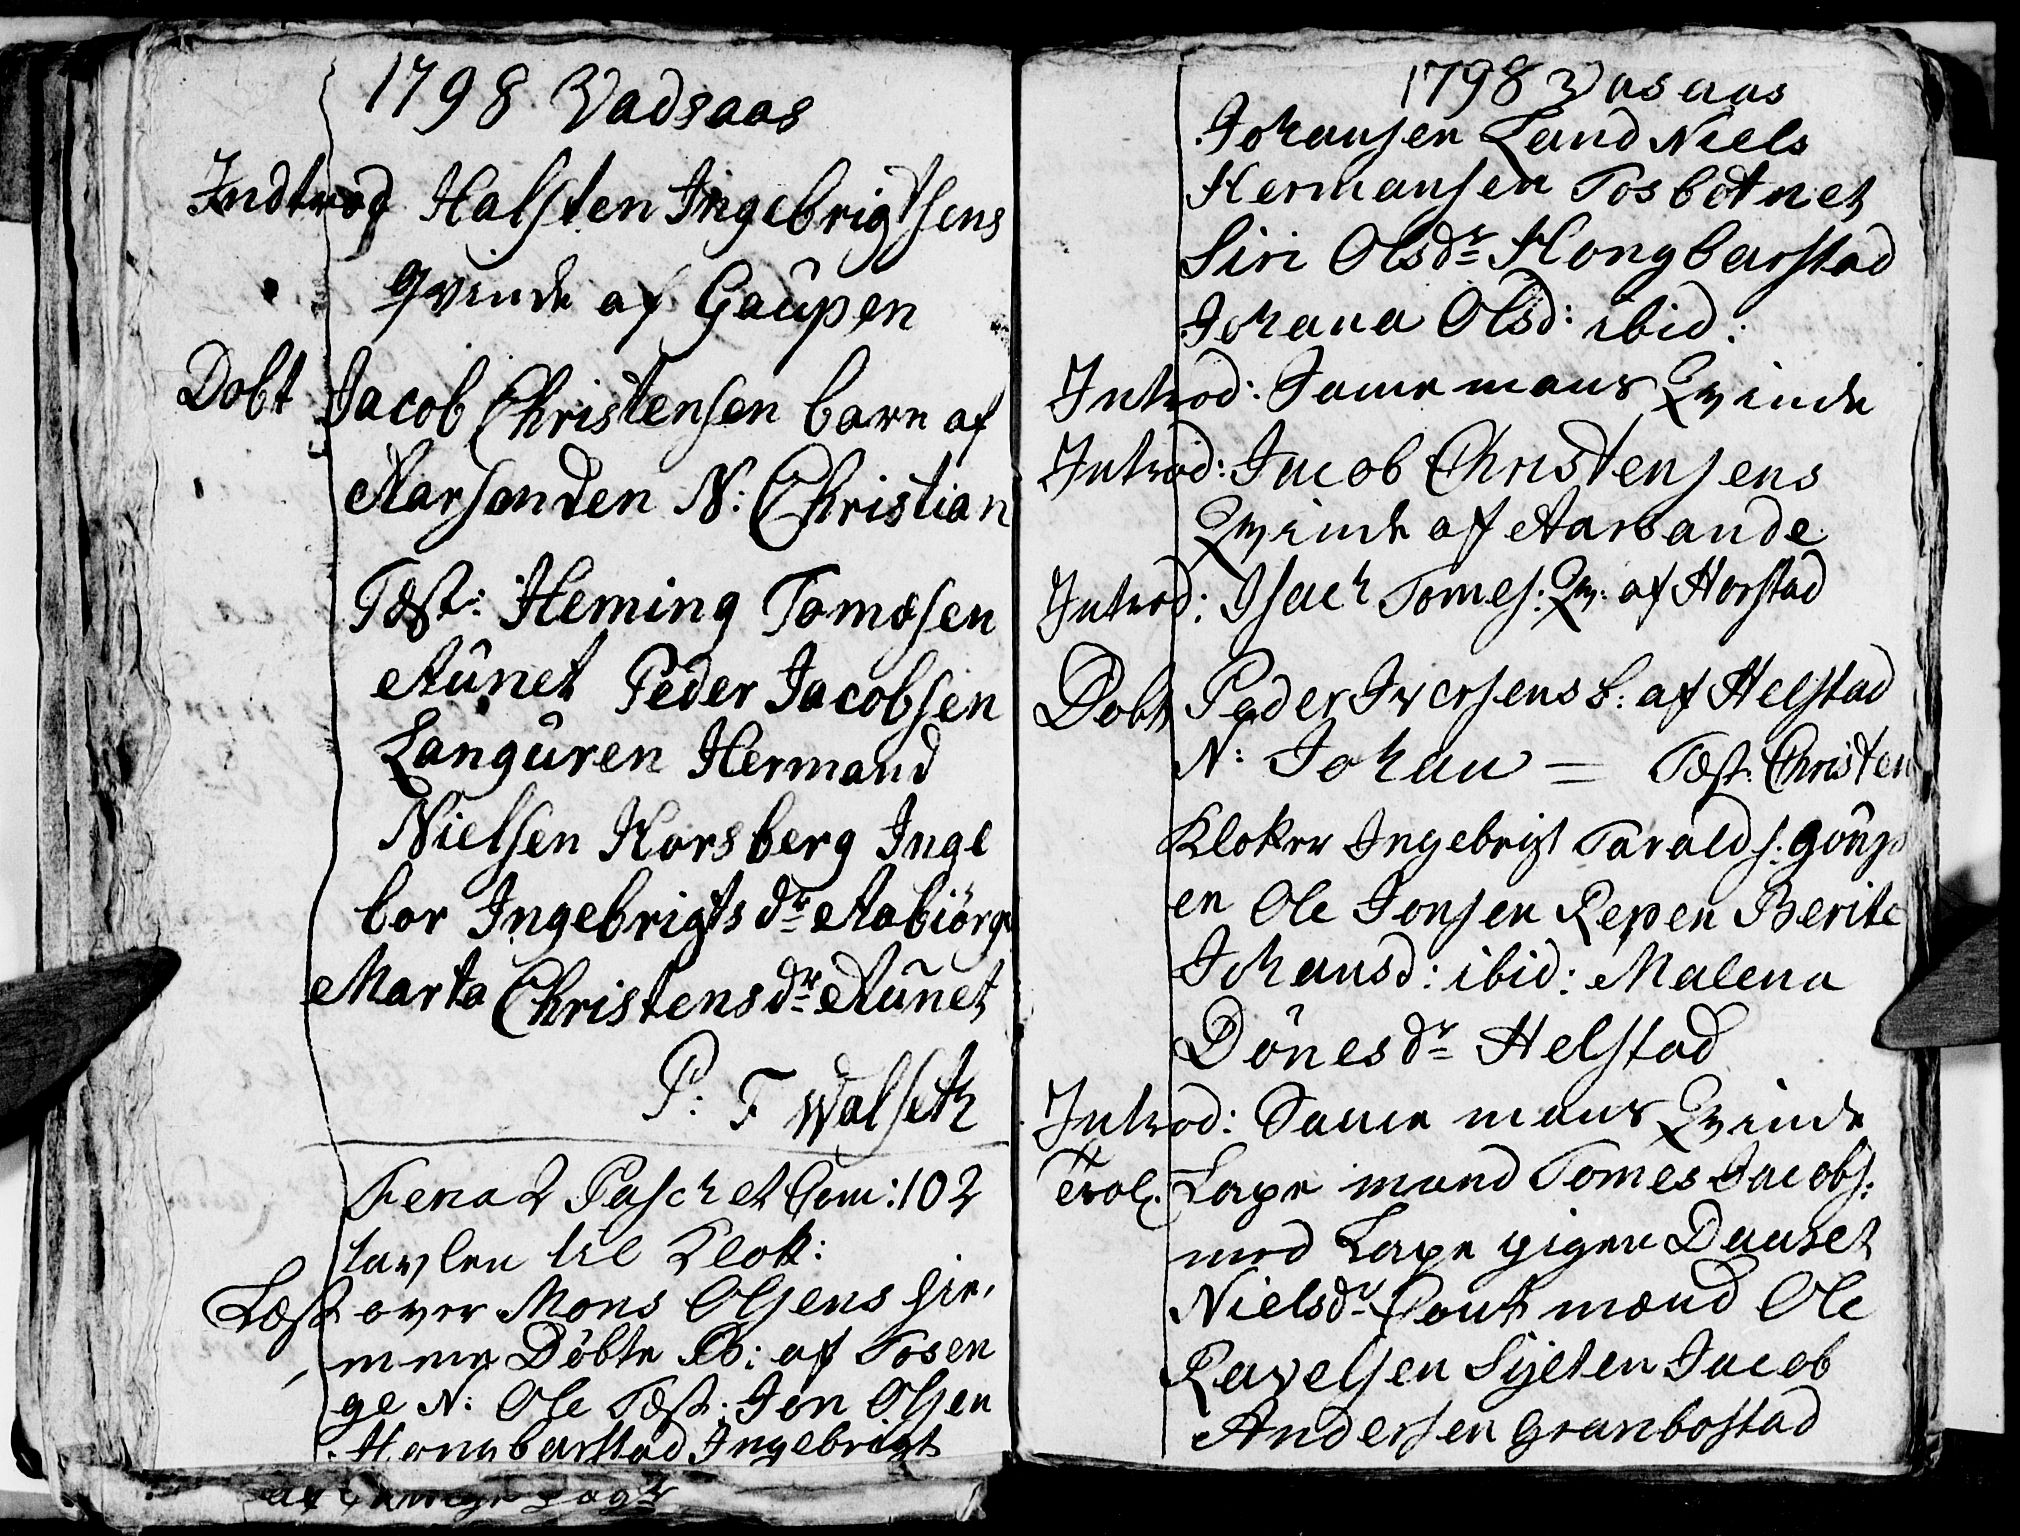 1798 Vadsaas
Indtrod Halsten Ingebrigtsens
Qvinde af Gaupen
Dobt Jacob Christensen barn af
Aarsanden N: Christian
Test: Heming Tomosen
Aunet Peder Jacobsen
Languren Hermand
Nielsen Horsberg Inge
bor Ingebrigtsdr Aabiörge
Marta Christensdr Aunet
P: F Walseth
Fena 2 Pasch et Com: 102
tavlen til Klok:
Læst over Mons Olsens hie,
mme Döbte B: af Tosen
ge N: Ole Test: Jon Olsen
Hongbarstad Ingebrigt
1798 Vasaas
Johansen Land Niels
Hermansen Tosbotnet
Siri Olsdr Hongbarstad
Johana Olsd: ibid:
Introd: Same mans Qvinde
Introd: Jacob Christensens
Qvinde af Aarsande
Introd: Isach Tomes: Qv: af Horstad
Dobt Peder Iversens b: af Helstad
N: Johan = Test: Christen
Kloker Ingebrigt Taralds: Goup
en Ole Jonsen Repen Berite
Johansd: ibid: Malena
Dönesdr Helstad
Introd: Same mans Qvinde
Trol: Lape mand Tomes Jacobs:
med Lape pigen Daaret
Nielsdr Cout mænd Ole
Pavelsen Sijeten Jacob
Andersen Granbostad